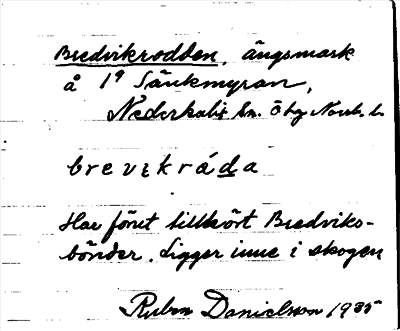 Bredvikrodden, ängsmark
å 1⁹ Sänkmyran,
Nederkalix sn. Öby Norrb. l.
brevikráda
Har förut tillhört Bredviks-
bönder. Ligger inne i skogen
Ruben Danielsson 1935